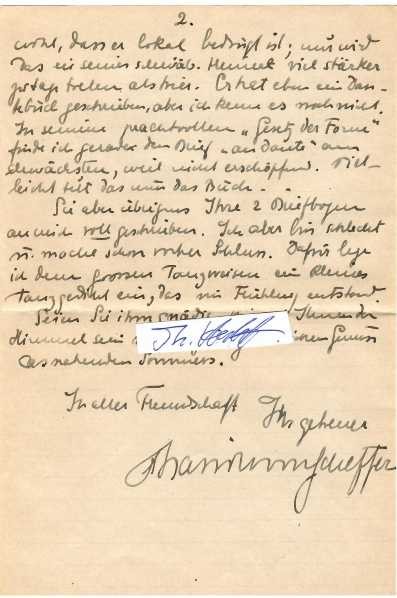 2.
wohl, dass er lokal bedingt ist; nur wird
das in seiner schwäb. Heimat viel stärker
zutage treten als hier. Er hat eben ein Dan-
buch geschrieben, aber ich kenne es noch nicht.
In seinem prachtvollen „Gesetz der Form"
finde ich gerade den Brief „an Dante" am
schwächsten, weil nicht erschöpfend. Viel-
leicht tut das nun das Buch.
Sie aber übrigens Ihre 2 Briefbogen
an mich voll geschrieben. Ich aber bin schlecht
u. mache schon vorher Schluss. Dafür lege
ich dem grossen Tanzweisen ein kleines
Tanzgedicht ein, das im Frühling entstand.
Seien Sie ihm gnädig
Himmel sein
des nahenden Sommers.
In aller Freundschaft Ihr getreuer
von Scheffer